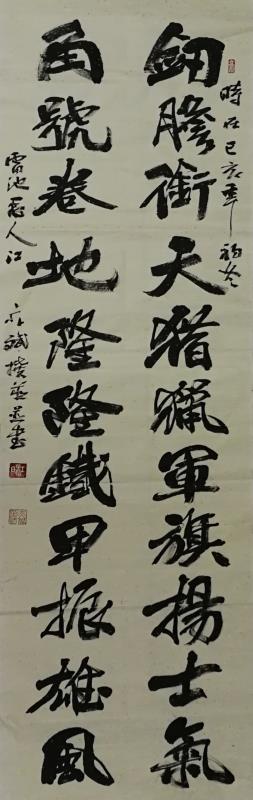 時在己亥年初冬
劍膽衝天猎獵軍旗揚士氣
角號卷地隆隆鐵甲振雄風
雷池愚人江
亦斌撰並書